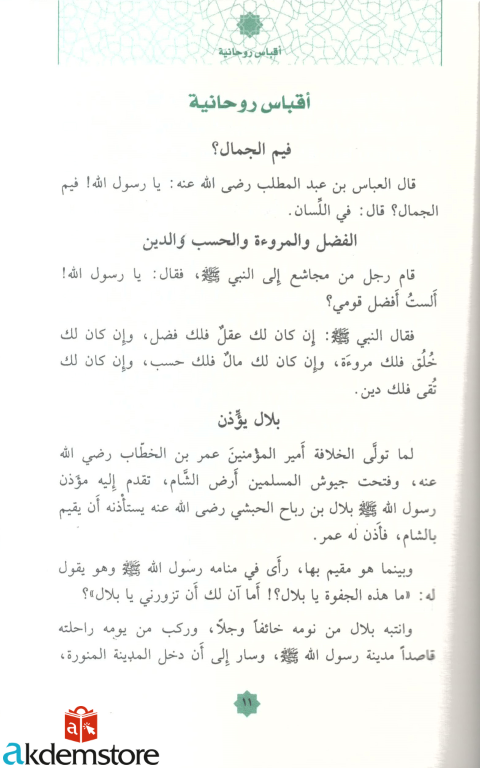 أقباس روحانية
أقباس روحانية
فيم الجمال؟
قال العباس بن عبد المطلب رضى الله عنه: يا رسول الله! فيم
الجمال؟ قال: في اللِّسان.
الفضل والمروءة والحسب والدين
قام رجل من مجاشع إلى النبي ﷺ، فقال: يا رسول الله!
أَلستُ أَفضل قومي؟
فقال النبي ﷺ: إِن كان لك عقلٌ فلك فضل، وإِن كان لك
خُلُق فلك مروءَة، وإِن كان لك مالٌ فلك حسب، وإِن كان لك
تُقى فلك دين.
بلال يؤِّذن
لما تولَّى الخلافة أَمير المؤمنينَ عمر بن الخطَّاب رضي الله
عنه، وفتحت جيوش المسلمين أَرض الشَّام، تقدم إِليه مؤذن
رسول الله ﷺ بلال بن رباح الحبشي رضى الله عنه يستأْذنه أَن يقيم
بالشام، فأَذن له عمر.
وبينما هو مقيم بها، رأَى في منامه رسول الله ﷺ وهو يقول
له: «ما هذه الجفوة يا بلال؟! أَما آن لك أَن تزورني يا بلال»؟
وانتبه بلال من نومه خائفاً وجلاً، وركب من يومه راحلته
قاصداً مدينة رسول الله ﷺ، وسار إِلى أَن دخل المدينة المنورة،
١١
a
akdemstore